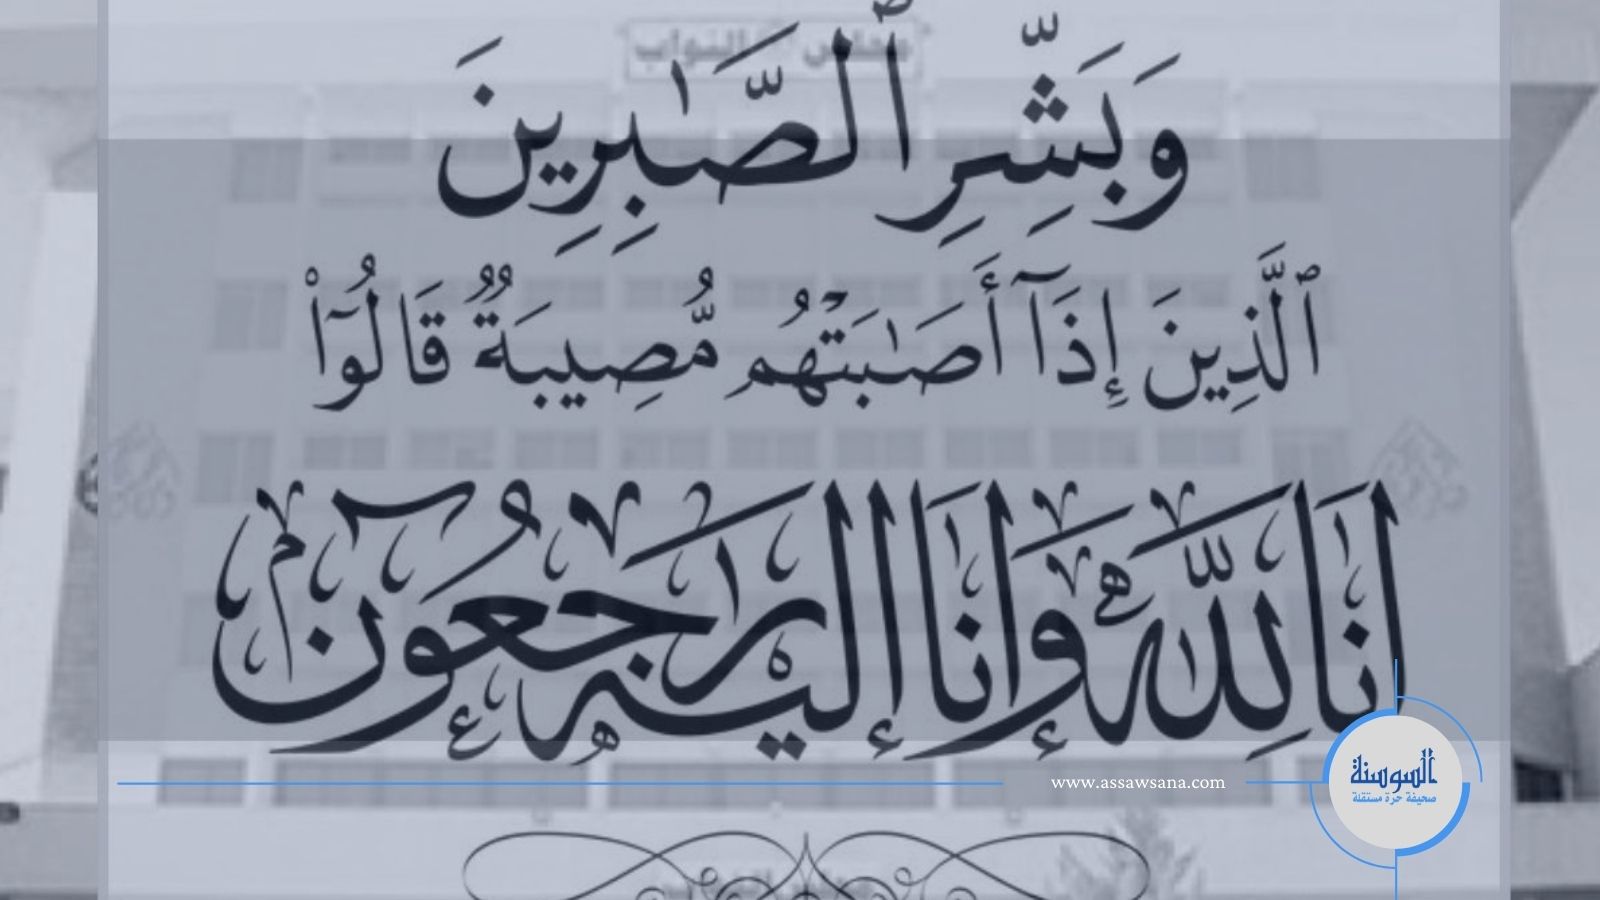 مجلس النواب
وَبَشِّرِ ٱلصَّٰبِرِينَ
ٱلَّذِينَ إِذَآ أَصَٰبَتْهُم مُّصِيبَةٌ قَالُوٓا۟
إِنَّا لِلَّهِ وَإِنَّا إِلَيْهِ رَاجِعُونَ
www.assawsana.com
السوسنة
صحيفة حرة مستقلة
مجلس النواب